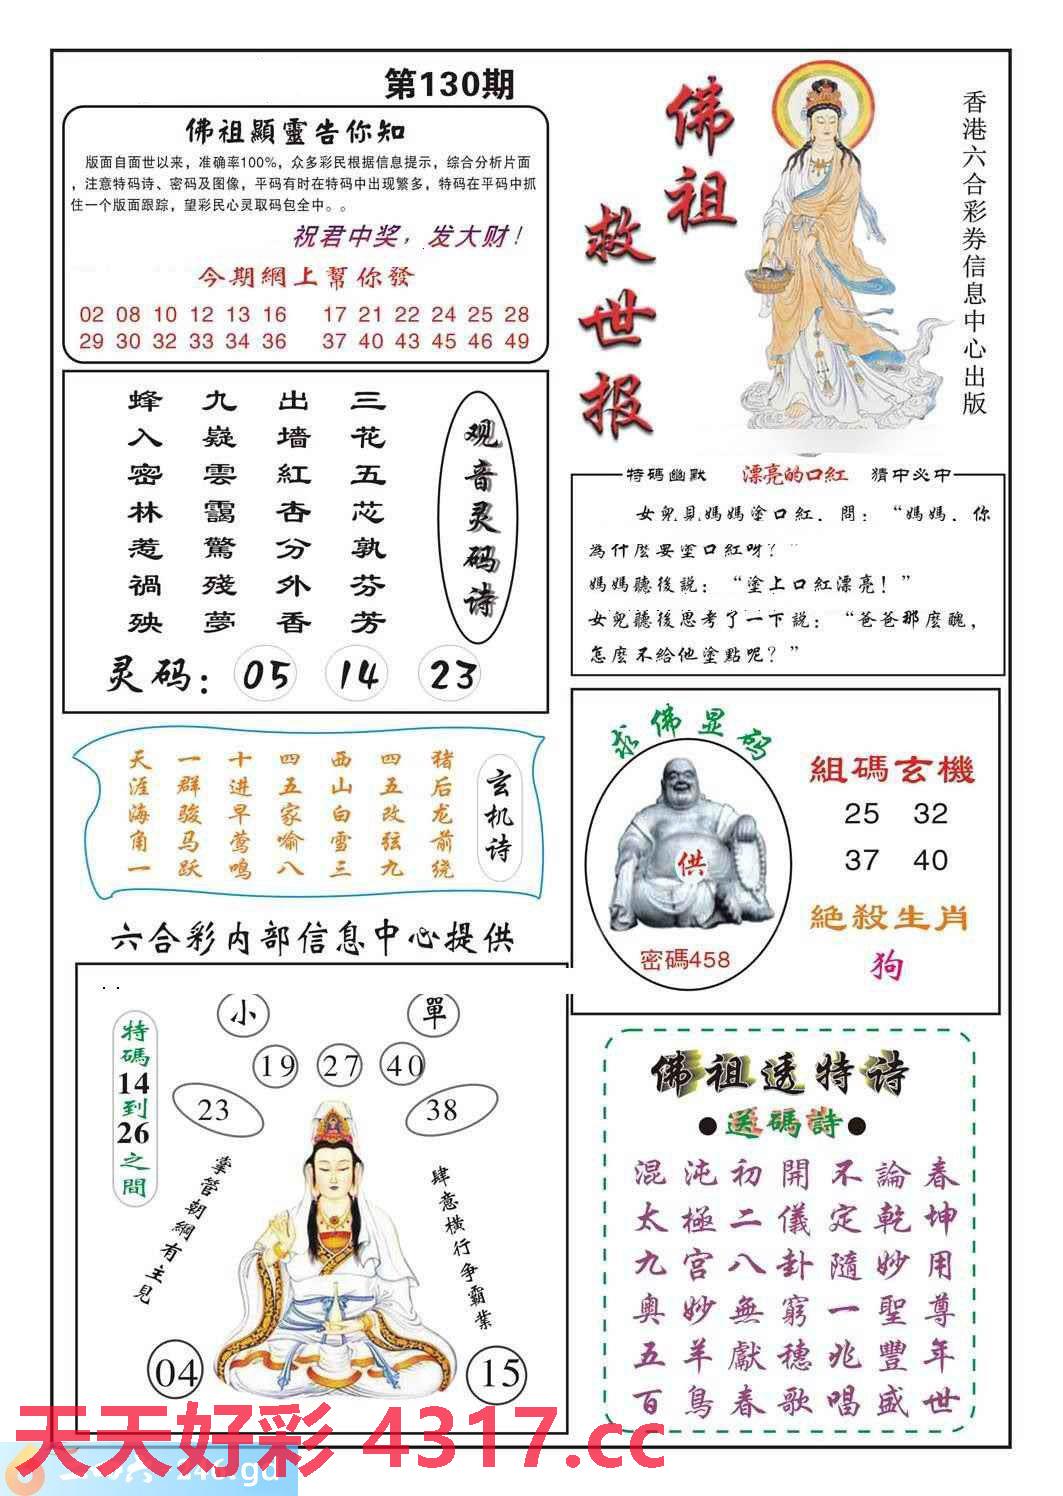 第130期
佛祖顯靈告你知
版面自面世以来，准确率100%，众多彩民根据信息提示，综合分析片面
，注意特码诗、密码及图像，平码有时在特码中出现繁多，特码在平码中抓
住一个版面跟踪，望彩民心灵取码包全中。。
祝君中奖，发大财！
今期網上幫你發
02 08 10 12 13 16 17 21 22 24 25 28
29 30 32 33 34 36 37 40 43 45 46 49
佛祖
救世报
香港六合彩券信息中心出版
观音灵码诗
三花五芯孰芬芳
出墙紅杏分外香
九嶷雲靄驚殘夢
蜂入密林惹禍殃
灵码：05 14 23
特碼幽默 漂亮的口紅 猜中必中
女兒見媽媽塗口紅．問：“媽媽．你
為什麼要塗口紅呀？”
媽媽聽後説：“塗上口紅漂亮！”
女兒聽後思考了一下説：“爸爸那麼醜，
怎麼不給他塗點呢？”
玄机诗
猪后龙前绕
四五改弦九
西山白雪三
四五家喻八
十进早莺鸣
一群骏马跃
天涯海角一
求佛显码
供
密碼458
組碼玄機
25 32
37 40
絕殺生肖
狗
六合彩内部信息中心提供
小 單
19 27 40
23 38
特碼14到26之間
掌管朝綱有主見
肆意橫行争霸業
04 15
佛祖透特诗
●送碼詩●
混沌初開不論春
太極二儀定乾坤
九宫八卦隨妙用
奥妙無窮一聖尊
五羊獻穗兆豐年
百鳥春歌唱盛世
天天好彩 4317.cc
246.gd